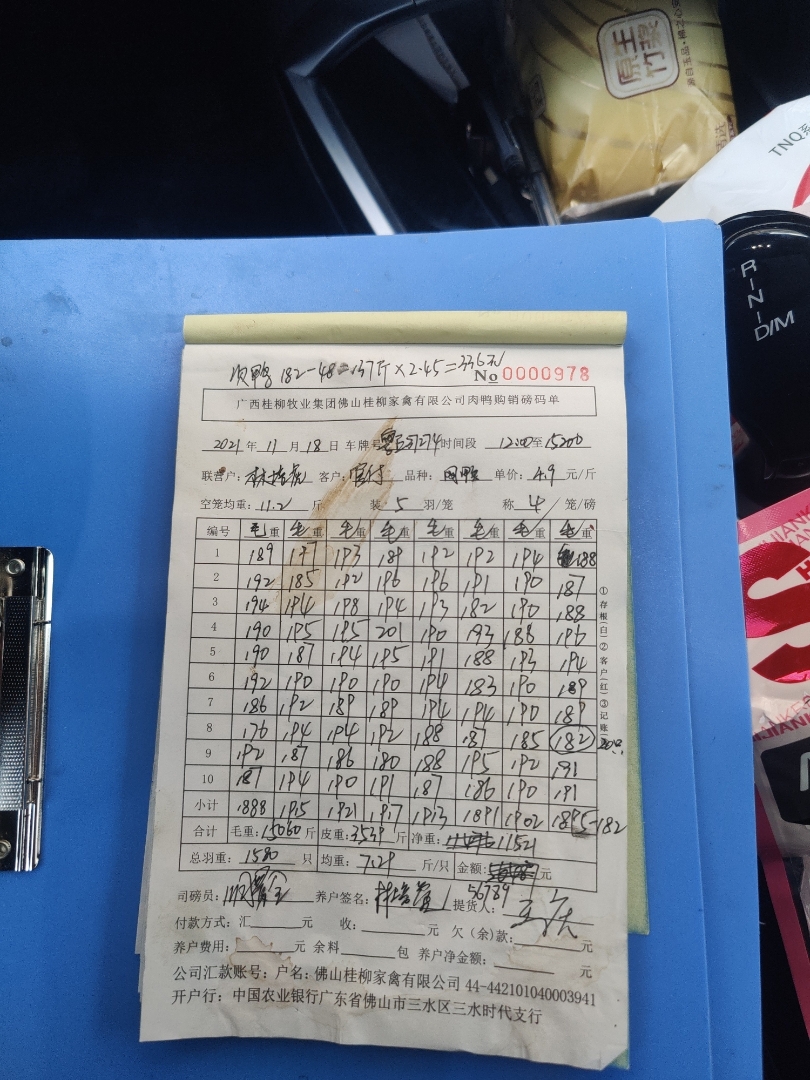 原生
竹浆
TNQ
R
N
D/M
顶鸭 182-48=137斤×2.45=336元
No 0000978
广西桂柳牧业集团佛山桂柳家禽有限公司肉鸭购销磅码单
2021 年 11 月 18 日 车牌号 时间段 12:00至15:00
联营户: 客户: 品种:肉鸭 单价:4.9 元/斤
空笼均重:11.2 斤 装 5 羽/笼 称 4 笼/磅
编号 毛重 毛重 毛重 毛重 毛重 毛重 毛重 毛重
1 189 177 193 189 192 192 194 188
2 192 185 192 196 196 191 190 187
3 194 194 198 194 193 182 190 188
4 190 195 195 201 190 193 188 196
5 190 187 194 195 191 188 193 194
6 192 190 190 190 194 183 190 189
7 186 192 189 189 194 194 190 189
8 176 194 194 192 188 187 185 182
9 192 187 186 180 188 195 192 191
10 187 194 190 191 187 186 190 191
小计 1888 1915 1921 1917 1913 1891 1902 1895-182
合计 毛重:15060斤 皮重:3539斤 净重: 11521
总羽重:1580 只 均重:7.29 斤/只 金额: 元
56789
司磅员: 养户签名: 提货人:
付款方式:汇 元 收: 元 欠(余)款: 元
养户费用: 元 余料 包 养户净金额: 元
公司汇款账号:户名:佛山桂柳家禽有限公司 44-442101040003941
开户行:中国农业银行广东省佛山市三水区三水时代支行
①存根(白)②客户(红)③记账